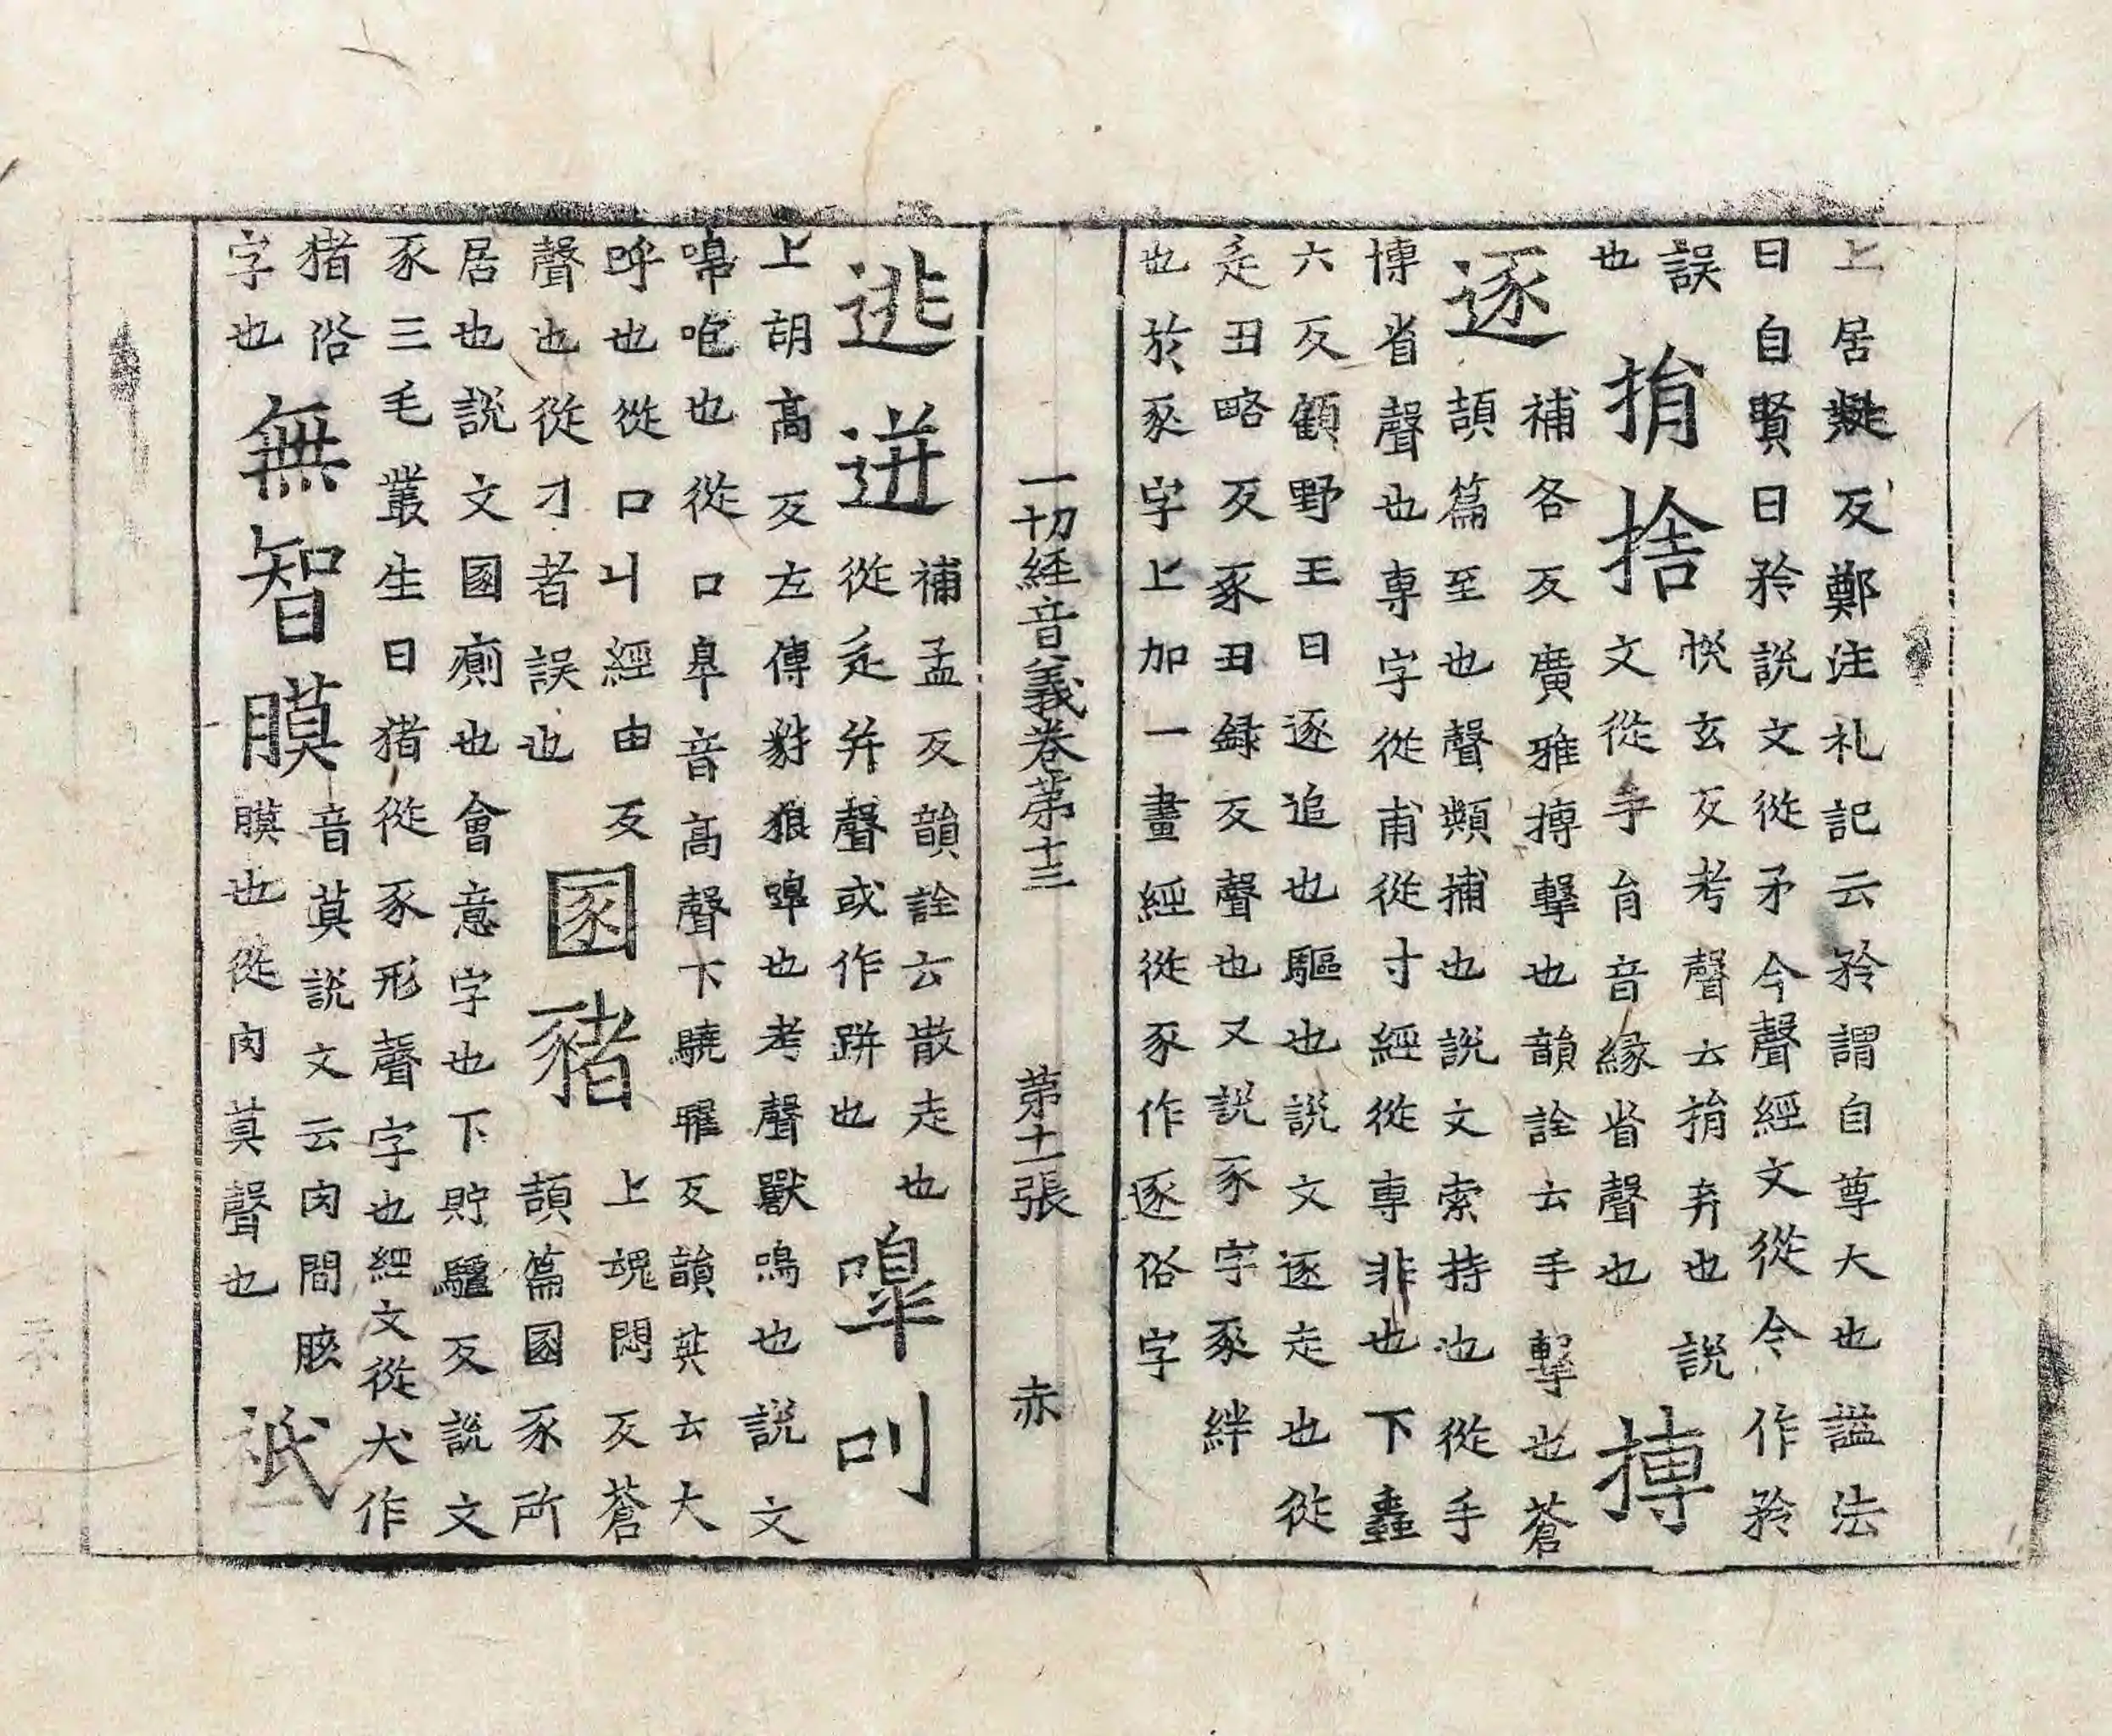 上居殑反鄭注礼記云矜謂自尊大也謚法
曰自賢曰矜說文從矛今聲經文從令作矜
誤
也
捐捨
悅玄反考聲云捐弃也說
文從手肙音緣省聲也
搏
逐
補各反廣雅搏擊也韻詮云手擊也蒼
頡篇至也聲類捕也說文索持也從手
博省聲也専字從甫從寸經從專非也下蟲
六反顧野王曰逐追也驅也說文逐走也從
辵丑略反豕丑録反聲也又説豕字豖絆
也於豕字上加一畫經從豕作逐俗字
一切經音義卷苐十三
苐十一張
赤
逃迸
補孟反韻詮云散走也
從辵并聲或作跰也
嘷叫
上胡高反左傳豺狼嘷也考聲獸鳴也説文
嘷咆也從口皋音高聲下驍曜反韻英云大
呼也從口丩經由反
聲也從才者誤也
圂豬
上魂悶反蒼
頡篇圂豕所
居也説文圂廁也會意字也下貯驢反説文
豕三毛叢生曰猪從豕形聲字也經文從犬作
猪俗
字也
無智膜
音莫説文云肉間胲
膜也從肉莫聲也
祇